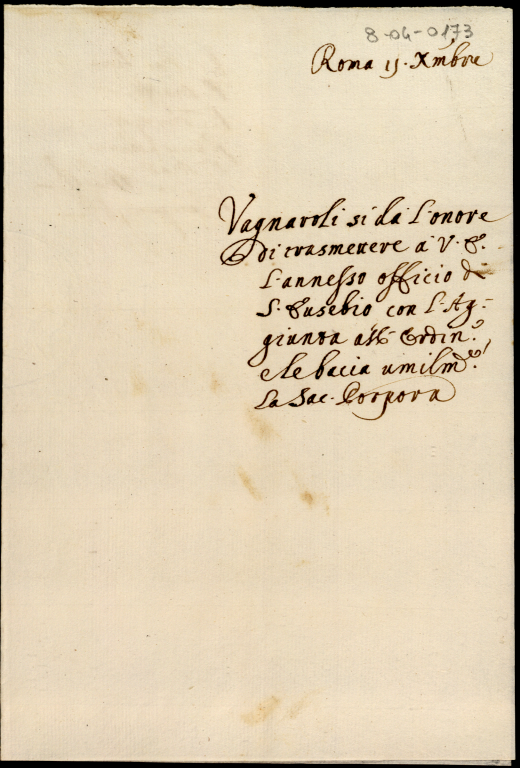 8-04-0173
Roma 15. Xmbre
Vagnaroli si dà l'onore
di trasmettere à V. E.
l'annesso officio di
S. Eusebio con l'Ag-
giunta all' Ordin.º
e le bacia umilm.e
la Sac. Porpora